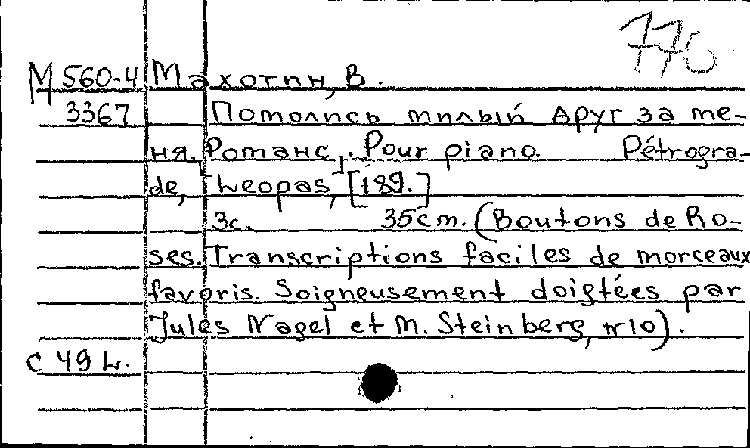 776
М 560-4 Махотин, В.
3367 Помолись милый друг за ме-
ня. Романс. Pour piano. Pétrogra-
de, Leopas, [189.]
3с. 35cm. (Boutons de Ro-
ses. Transcriptions faciles de morceaux
favoris. Soigneusement doigtées par
Jules Nagel et M. Steinberg, № 10).
С 49 L.